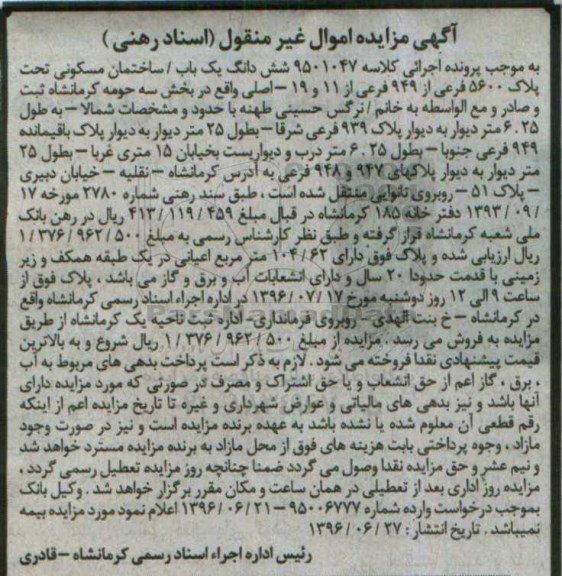 آگهی مزایده اموال غیر منقول (اسناد رهنی)
به موجب پرونده اجرائی کلاسه ۹۵۰۱۰۴۷ شش دانگ یک باب / ساختمان مسکونی تحت
پلاک ۵۶۰۰ فرعی از ۹۴۹ فرعی از ۱۱ و ۱۹ – اصلی واقع در بخش سه حومه کرمانشاه ثبت
و صادر و مع الواسطه به خانم / نرگس حسینی طهنه با حدود و مشخصات شمالا – به طول
۶.۲۵ متر دیوار به دیوار پلاک ۹۳۹ فرعی شرقا – بطول ۲۵ متر دیوار به دیوار پلاک باقیمانده
۹۴۹ فرعی جنوبا – بطول ۶.۲۵ متر درب و دیواریست بخیابان ۱۵ متری غربا – بطول ۲۵
متر دیوار به دیوار پلاکهای ۹۴۷ و ۹۴۸ فرعی به آدرس کرمانشاه – نقلیه – خیابان دبیری
– پلاک ۵۱ – روبروی نانوایی منتقل شده است ، طبق سند رهنی شماره ۲۷۸۰ مورخه ۱۷
/ ۰۹ / ۱۳۹۳ دفتر خانه ۱۸۵ کرمانشاه در قبال مبلغ ۴۵۹ / ۱۱۹ / ۴۱۳ ریال در رهن بانک
ملی شعبه کرمانشاه قرار گرفته و طبق نظر کارشناس رسمی به مبلغ ۵۰۰ / ۹۶۲ / ۳۷۶ / ۱
ریال ارزیابی شده و پلاک فوق دارای ۶۲ / ۱۰۴ متر مربع اعیانی در یک طبقه همکف و زیر
زمینی با قدمت حدودا ۲۰ سال و دارای انشعابات آب و برق و گاز می باشد ، پلاک فوق از
ساعت ۹ الی ۱۲ روز دوشنبه مورخ ۱۷ / ۰۷ / ۱۳۹۶ در اداره اجراء اسناد رسمی کرمانشاه واقع
در کرمانشاه – خ بنت الهدی – روبروی فرمانداری – اداره ثبت ناحیه یک کرمانشاه از طریق
مزایده به فروش می رسد . مزایده از مبلغ ۵۰۰ / ۹۶۲ / ۳۷۶ / ۱ ریال شروع و به بالاترین
قیمت پیشنهادی نقدا فروخته می شود . لازم به ذکر است پرداخت بدهی های مربوط به آب
، برق ، گاز اعم از حق انشعاب و یا حق اشتراک و مصرف در صورتی که مورد مزایده دارای
آنها باشد و نیز بدهی های مالیاتی و عوارض شهرداری و غیره تا تاریخ مزایده اعم از اینکه
رقم قطعی آن معلوم شده یا نشده باشد به عهده برنده مزایده است و نیز در صورت وجود
مازاد ، وجوه پرداختی بابت هزینه های فوق از محل مازاد به برنده مزایده مسترد خواهد شد
و نیم عشر و حق مزایده نقدا وصول می گردد ضمنا چنانچه روز مزایده تعطیل رسمی گردد ،
مزایده روز اداری بعد از تعطیلی در همان ساعت و مکان مقرر برگزار خواهد شد . وکیل بانک
بموجب درخواست وارده شماره ۹۵۰۰۶۷۷۷ – ۲۱ / ۰۶ / ۱۳۹۶ اعلام نمود مورد مزایده بیمه
نمیباشد . تاریخ انتشار : ۲۷ / ۰۶ / ۱۳۹۶
رئیس اداره اجراء اسناد رسمی کرمانشاه – قادری